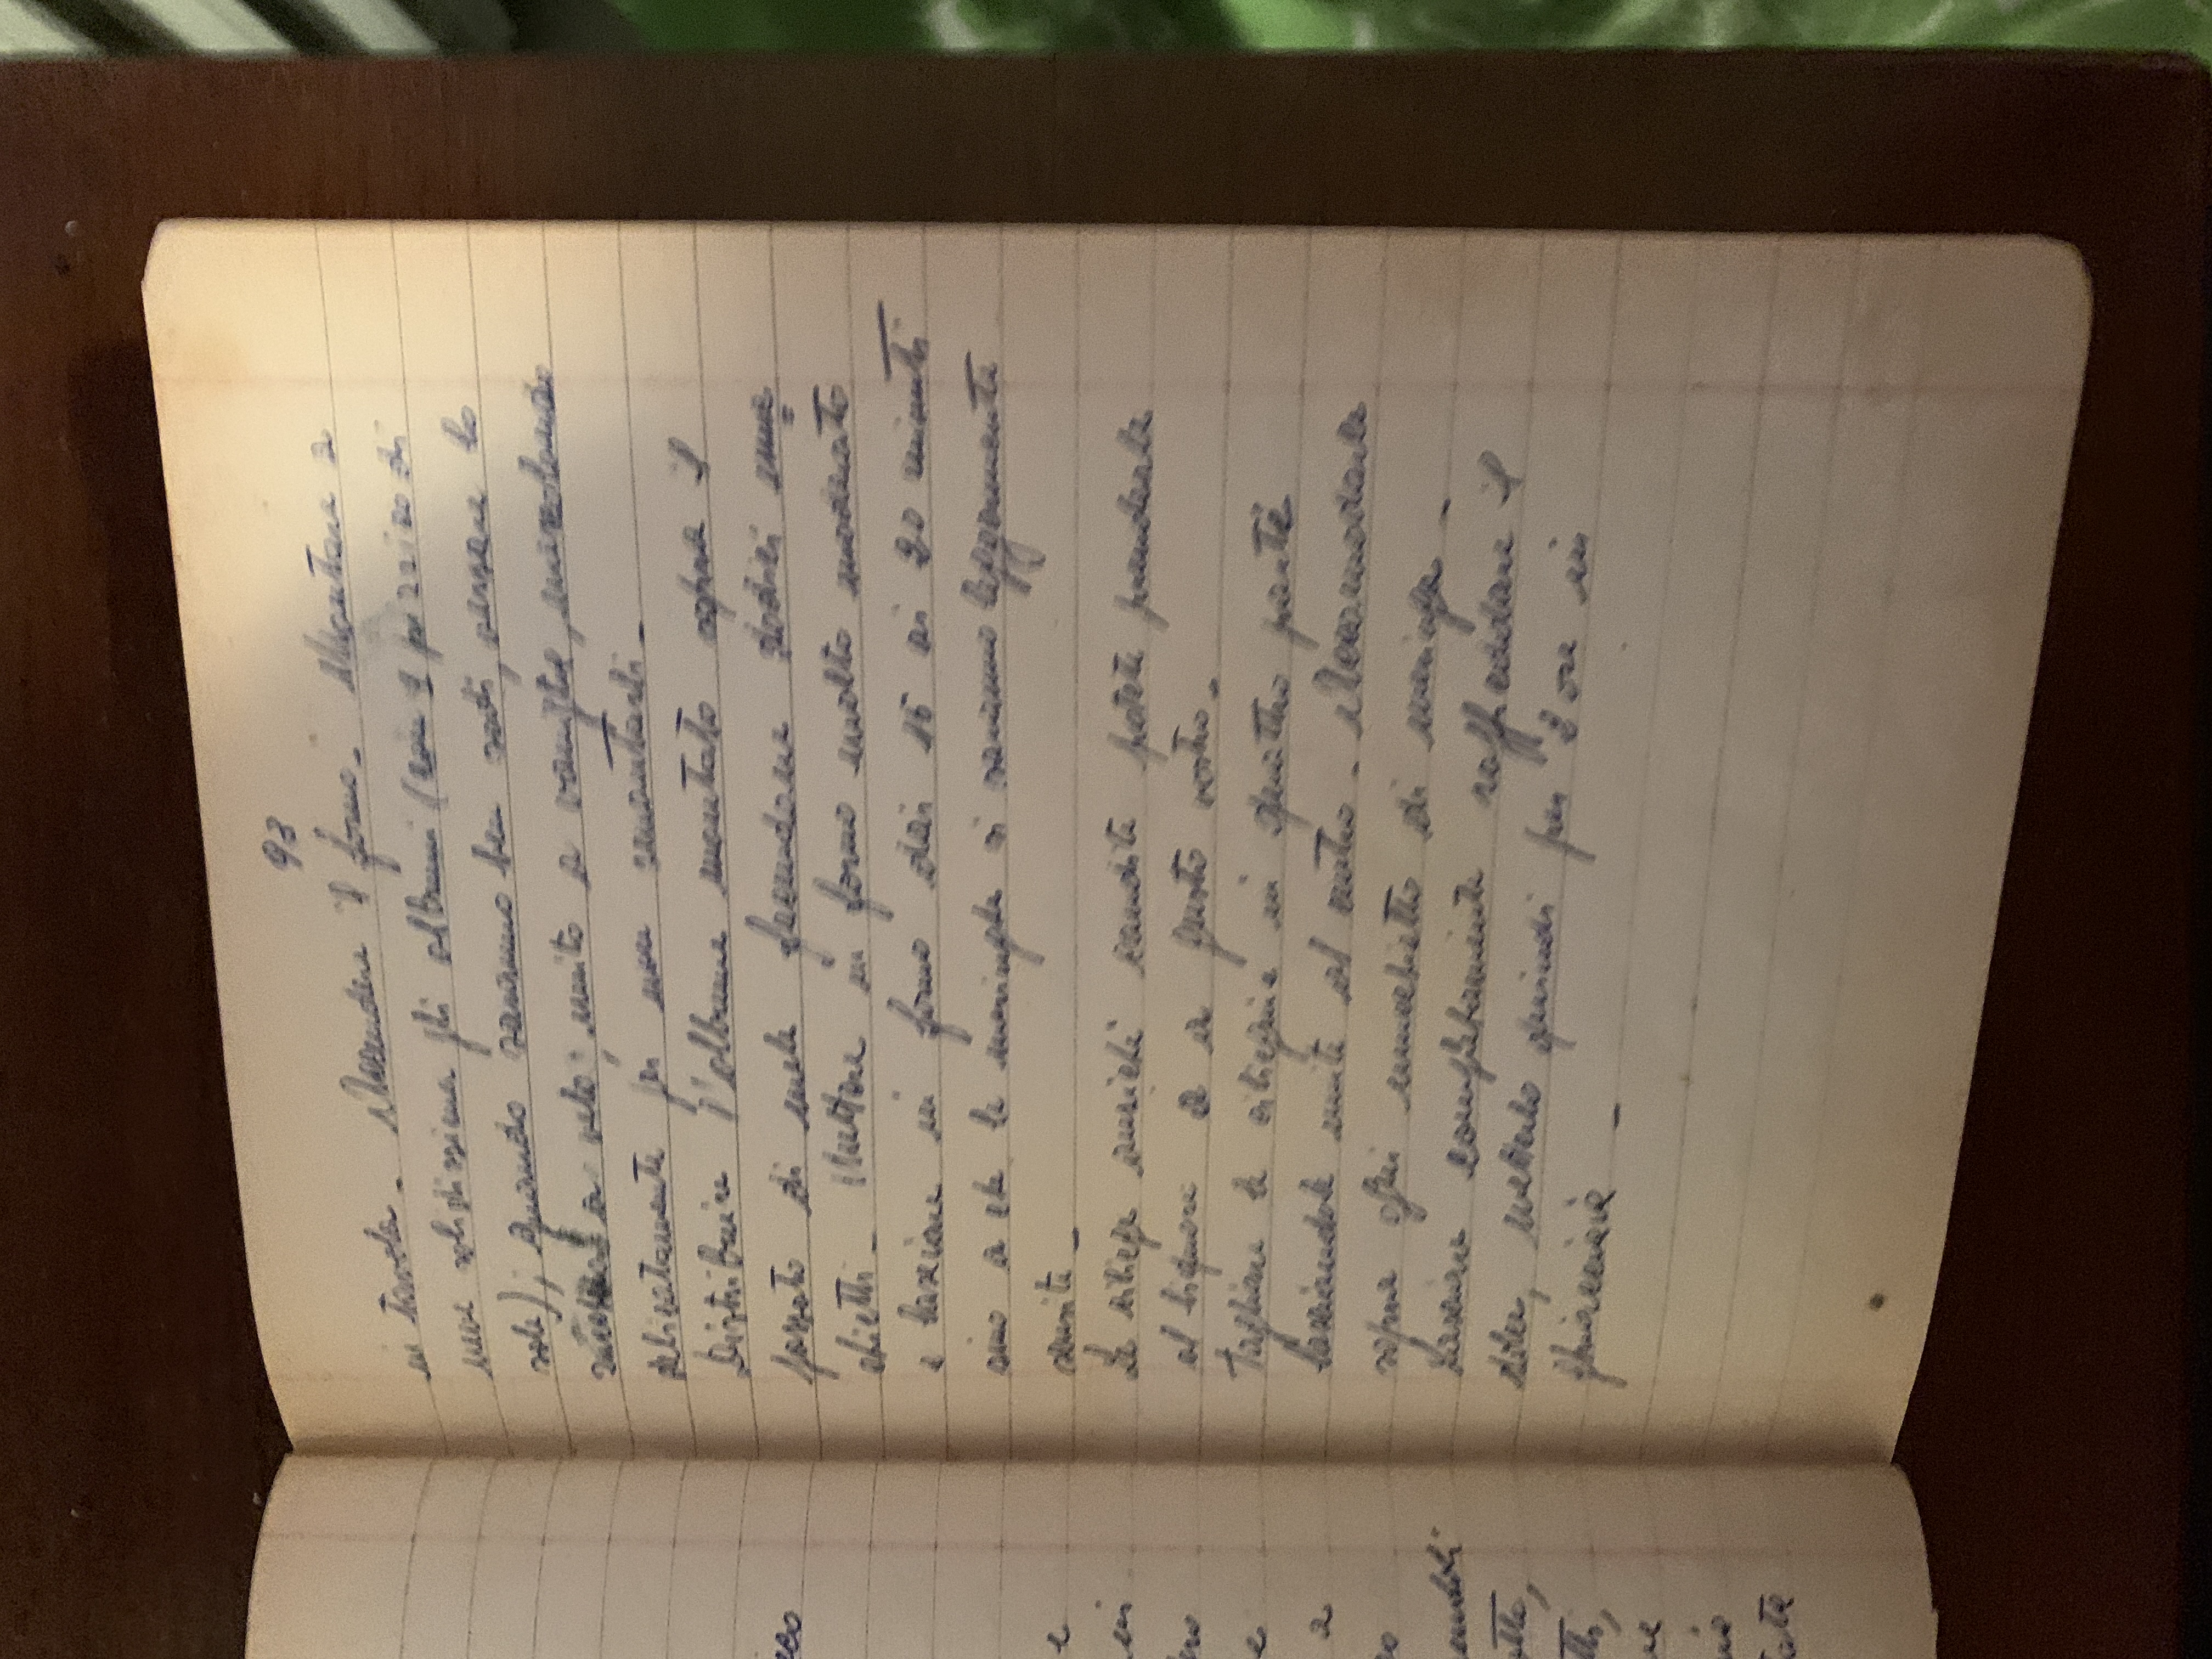 93
in tavola - Accendere il forno - Montare a
neve solidissima gli albumi (con 1 pizzico di
sale); quando saranno ben sodi, versare lo
a velo; unito a vaniglia, mescolando
delicatamente per non smontarli -
Distribuire l'albume montato sopra il
passato di mele facendone dodici muc
chietti - Mettere in forno molto moderato
e lasciare in forno dai 15 ai 20 minuti
sino a che le meringhe si saranno leggermente
Le ciliege anzichè candite potete prenderle
al liquore o a gusto vostro -
Tagliare le ciliegine in quattro parti
lasciandole unite al centro - Accomodarle
sopra ogni mucchietto di meringa -
Lasciare completamente raffreddare il
dolce, metterlo quindi per 2 ore in
ghiacciaia -
eco
e
in
ero
e
a
endoli
atte,
tti,
re
tate